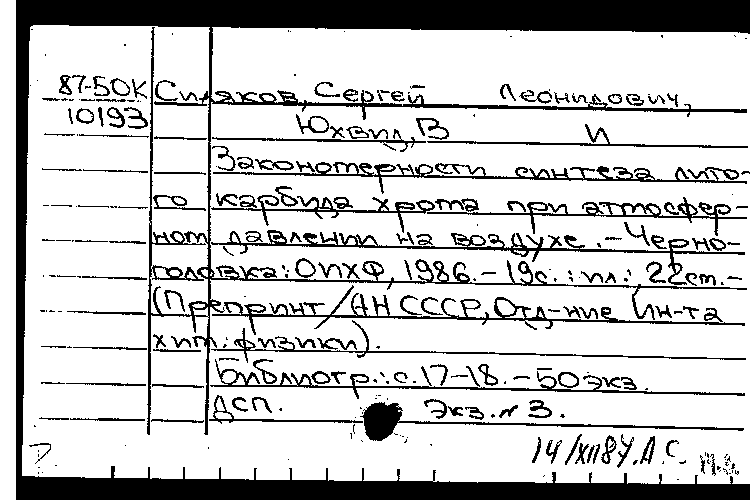 87-50К Силяков, Сергей Леонидович,
10193 Юхвид, В И
Закономерности синтеза лито-
го карбида хрома при атмосфер-
ном давлении на воздухе. - Черно-
головка: ОИХФ, 1986. - 19с. : ил.; 22см. -
(Препринт / АН СССР, Отд-ние Ин-та
хим. физики).
Библиогр.: с. 17-18. - 50 экз.
ДСП. Экз. № 3.